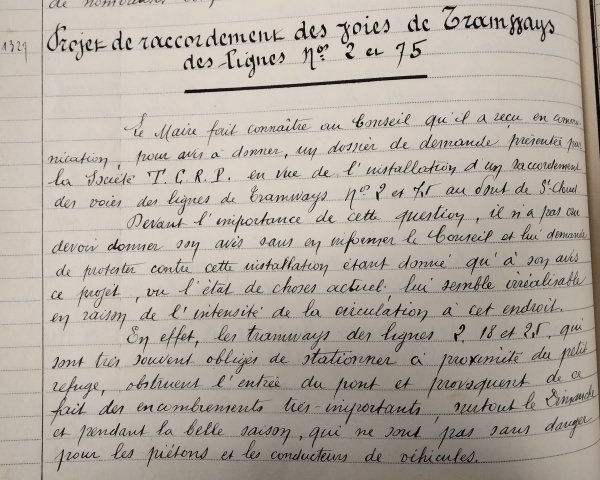 de nombreuses
1329
Projet de raccordement des voies de Tramways
des lignes nos 2 et 75
Le Maire fait connaître au Conseil qu'il a reçu en commu-
nication, pour avis à donner, un dossier de demande présentée par
la Société T.C.R.P. en vue de l'installation d'un raccordement
des voies des lignes de Tramways nos 2 et 75 au pont de St Cloud.
Devant l'importance de cette question, il n'a pas cru
devoir donner son avis sans en informer le Conseil et lui demande
de protester contre cette installation étant donné qu'à son avis
ce projet, vu l'état de choses actuel lui semble irréalisable
en raison de l'intensité de la circulation à cet endroit.
En effet, les tramways des lignes 2, 18 et 25, qui
sont très souvent obligés de stationner à proximité du petit
refuge, obstruent l'entrée du pont et provoquent de ce
fait des encombrements très-importants, surtout le Dimanche
et pendant la belle saison, qui ne sont pas sans danger
pour les piétons et les conducteurs de véhicules.